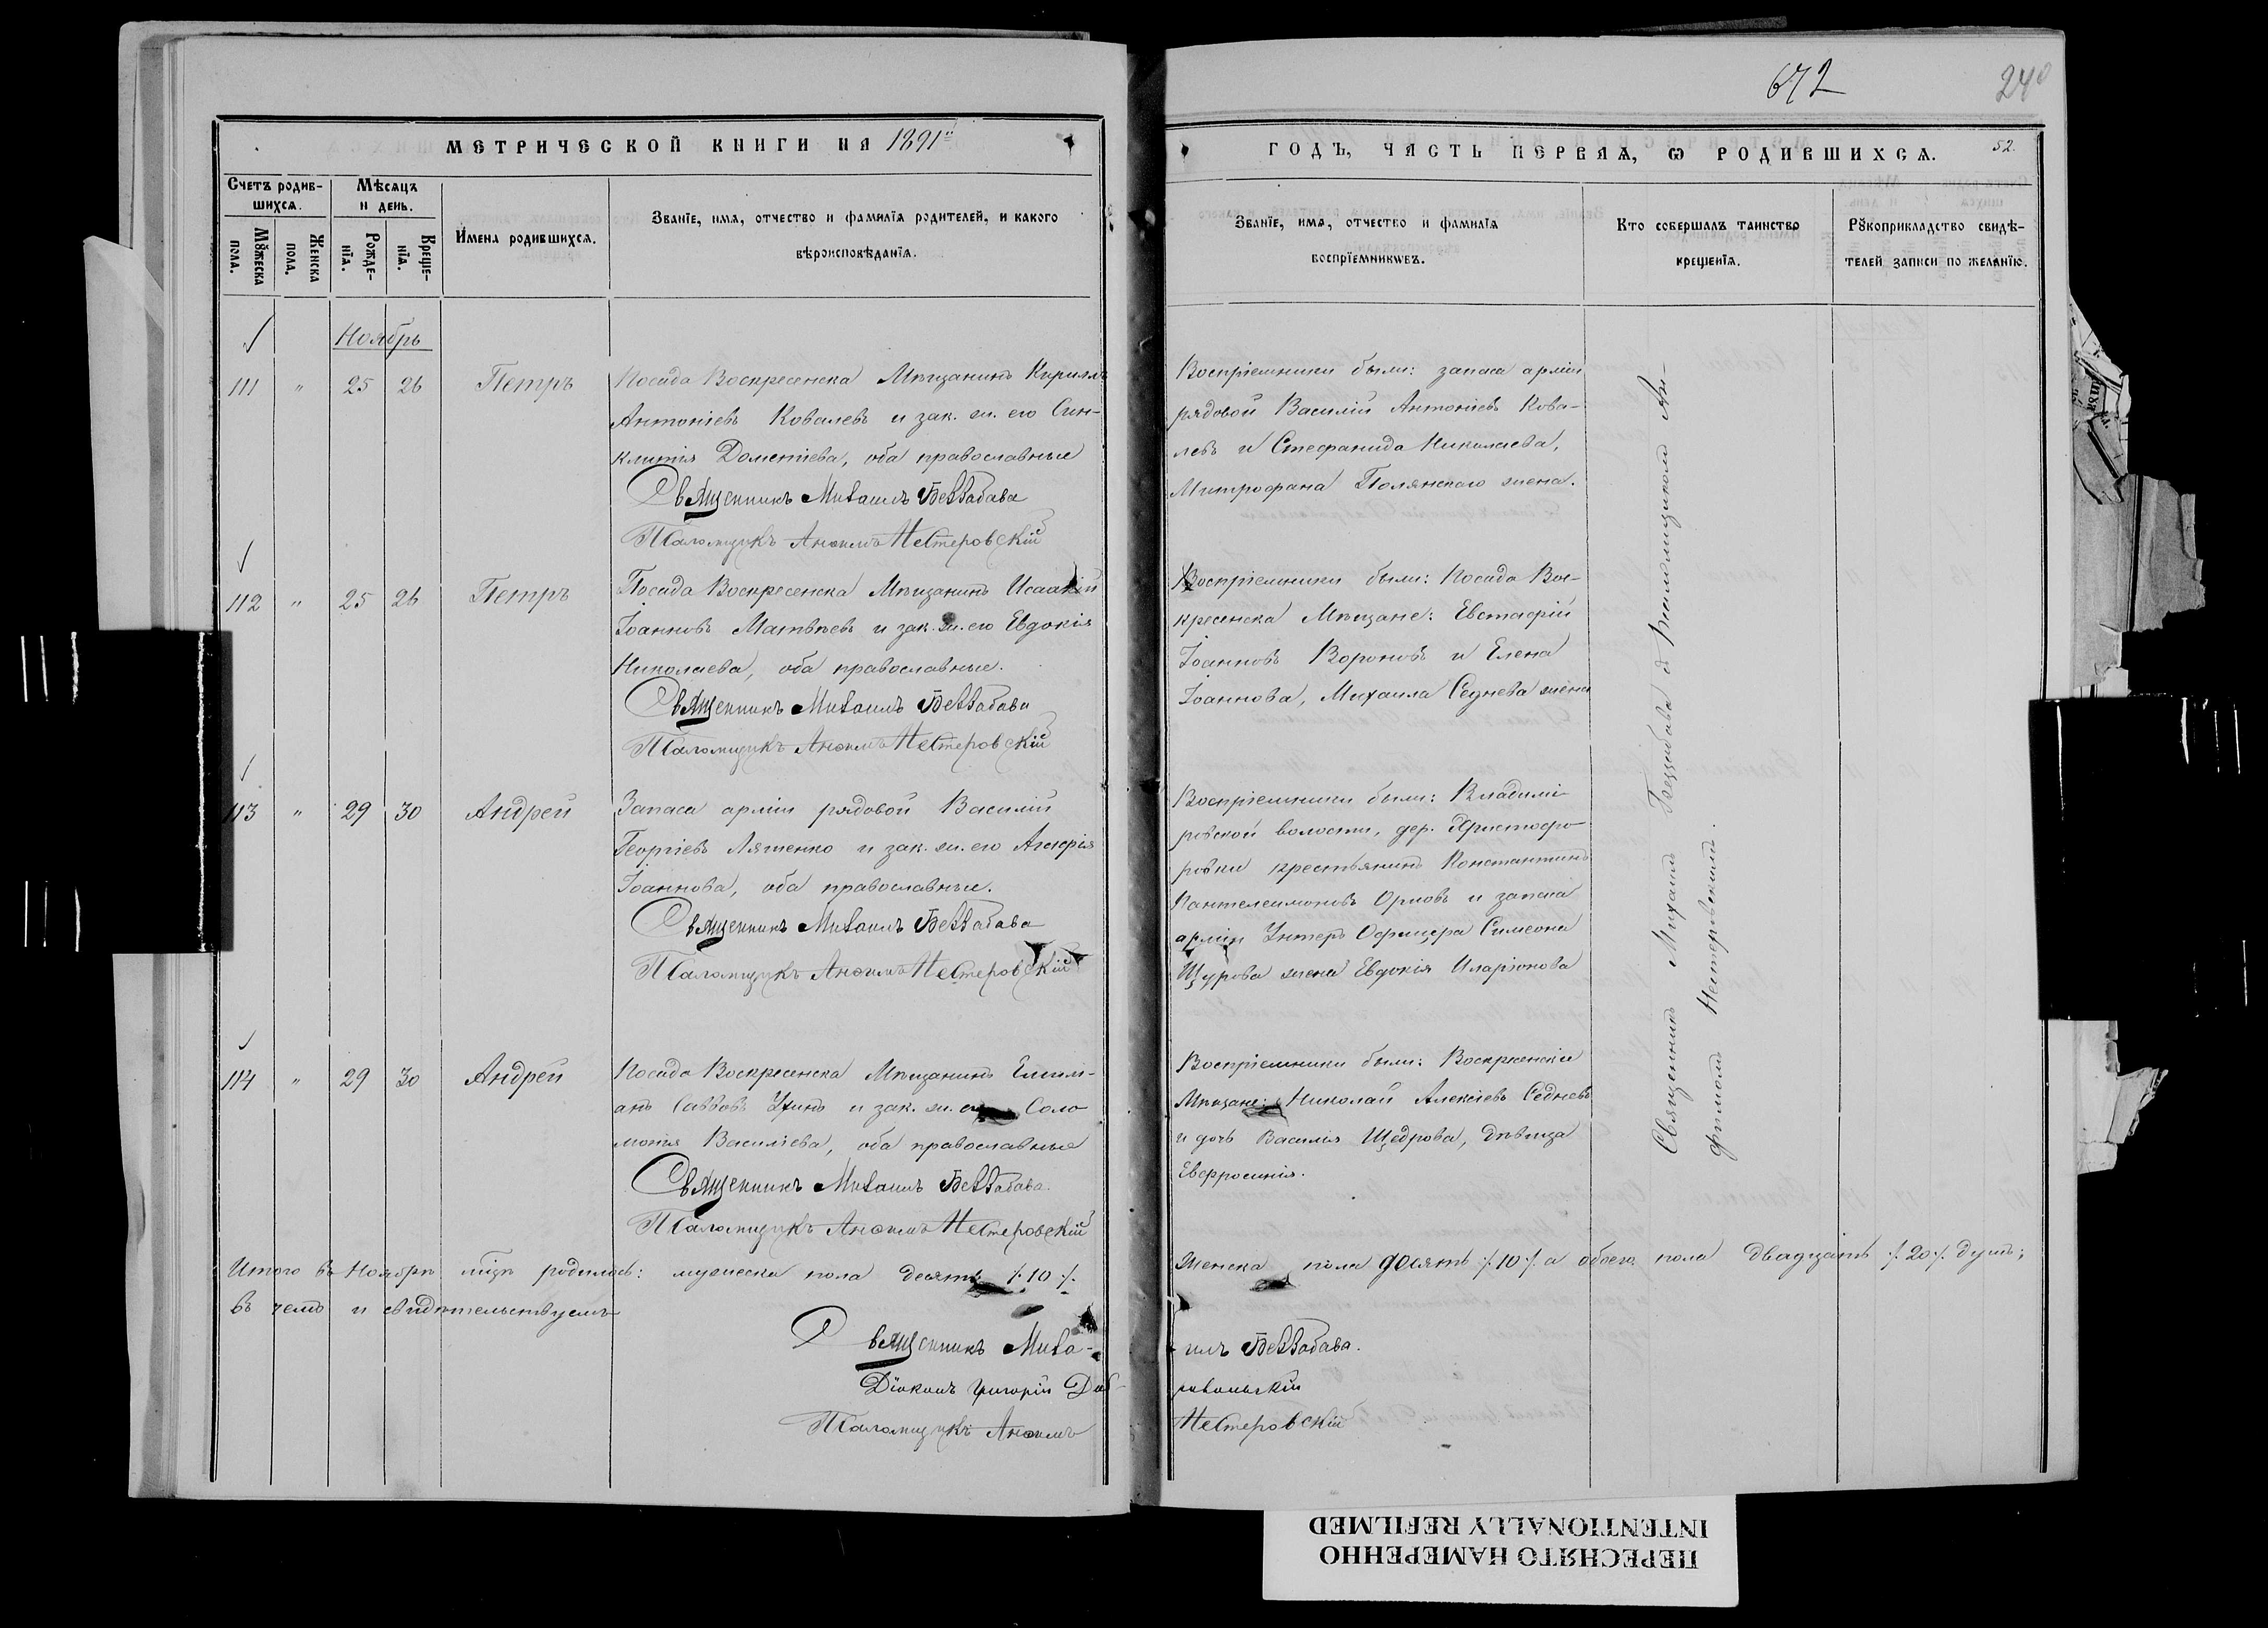 672
240
МЕТРИЧЕСКОЙ КНИГИ НА 1891й
ГОДЪ, ЧАСТЬ ПЕРВАЯ, Ѡ РОДИВШИХСЯ.
52.
Счетъ родив-
шихся.
Мѣсяцъ
и день.
Мꙋжеска
пола.
Женска
пола.
Рожде-
нїя.
Креще-
нїя.
Имена родившихся.
Званїе, имя, отчество и фамилїя родителей, и какого
вѣроисповѣданїя.
Званїе, имя, отчество и фамилїя
воспрїемникѡвъ.
Кто совершалъ таинство
крещенїя.
Рꙋкоприкладство свидѣ-
телей записи по желанїю.
Ноябрь
111 " 25 26 Петръ
Посада Воскресенска Мѣщанинъ Кириллъ
Антоніевъ Ковалевъ и зак. ж. его Син-
клитія Дометіева, оба православные
Священникъ Михаилъ Беззабава
Псаломщикъ Анѳимъ Нестеровскій
Воспріемники были: запаса арміи
рядовой Василій Антоніевъ Кова-
левъ и Стефанида Николаева,
Митрофана Полянскаго жена.
112 " 25 26 Петръ
Посада Воскресенска Мѣщанинъ Исаакій
Іоанновъ Матвѣевъ и зак. ж. его Евдокія
Николаева, оба православные.
Священникъ Михаилъ Беззабава
Псаломщикъ Анѳимъ Нестеровскій
Воспріемники были: Посада Вос-
кресенска Мѣщане: Евстафій
Іоанновъ Вороновъ и Елена
Іоаннова, Михаила Седнева жена
113 " 29 30 Андрей
Запаса арміи рядовой Василій
Георгіевъ Ляшенко и зак. ж. его
Іоаннова, оба православные.
Священникъ Михаилъ Беззабава
Псаломщикъ Анѳимъ Нестеровскій
Воспріемники были: Владимі-
ровской волости, дер. Христофо-
ровки крестьянинъ Константинъ
Пантелеимоновъ Орловъ и запаса
арміи Унтеръ Офицера Симеона
Щурова жена Евдокія Иларіонова
114 " 29 30 Андрей
Посада Воскресенска Мѣщанинъ Емили-
анъ Саввовъ и зак. ж. его Соло-
монія Василіева, оба православные
Священникъ Михаилъ Беззабава.
Псаломщикъ Анѳимъ Нестеровскій
Воспріемники были: Воскресенскіе
Мѣщане: Николай Алексіевъ Седневъ
и дочь Василія Щедрова, дѣвица
Евфросинія.
Священникъ Михаилъ Беззабава съ Псаломщикомъ Ан-
фимомъ Нестеровскимъ.
Итого въ Ноябрѣ родилось: мужеска пола десять ./.10./. женска пола десять ./.10./. а обоего пола двадцать ./.20./. душъ;
въ чемъ и свидѣтельствуемъ
Священникъ Миха-
илъ Беззабава.
Діаконъ Григорій Доб-
ровольскій
Псаломщикъ Анѳимъ
Нестеровскій
ПЕРЕСНЯТО НАМЕРЕННО
INTENTIONALLY REFILMED